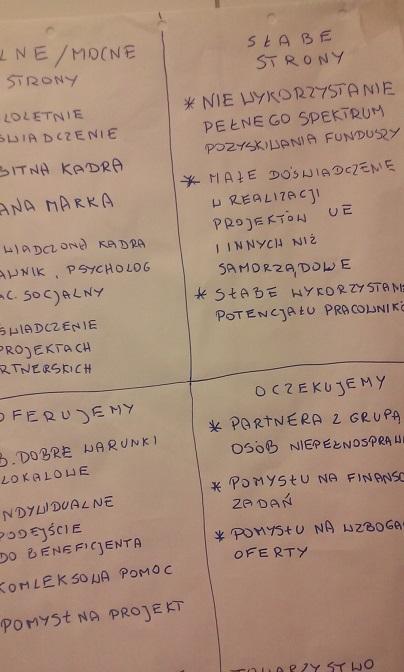 LNE/MOCNE
STRONY
LOLETNIE
ŚWIADCZENIE
BITNA KADRA
ANA MARKA
WIADCZONA KADRA
AWNIK, PSYCHOLOG
AC. SOCJALNY
ŚWIADCZENIE
PROJEKTACH
RTNERSKICH
SŁABE
STRONY
* NIE WYKORZYSTANIE
PEŁNEGO SPEKTRUM
POZYSKIWANIA FUNDUSZY
* MAŁE DOŚWIADCZENIE
W REALIZACJI
PROJEKTÓW UE
I INNYCH NIŻ
SAMORZĄDOWE
* SŁABE WYKORZYSTANI
POTENCJAŁU PRACOWNIKÓ
OFERUJEMY
B. DOBRE WARUNKI
LOKALOWE
NDYWIDUALNE
PODEJŚCIE
DO BENEFICJENTA
KOMLEKSOWA POMOC
POMYSŁ NA PROJEKT
OCZEKUJEMY
* PARTNERA Z GRUPĄ
OSÓB NIEPEŁNOSPRAW
* POMYSŁU NA FINANSO
ZADAŃ
* POMYSŁU NA WZBOGA
OFERTY